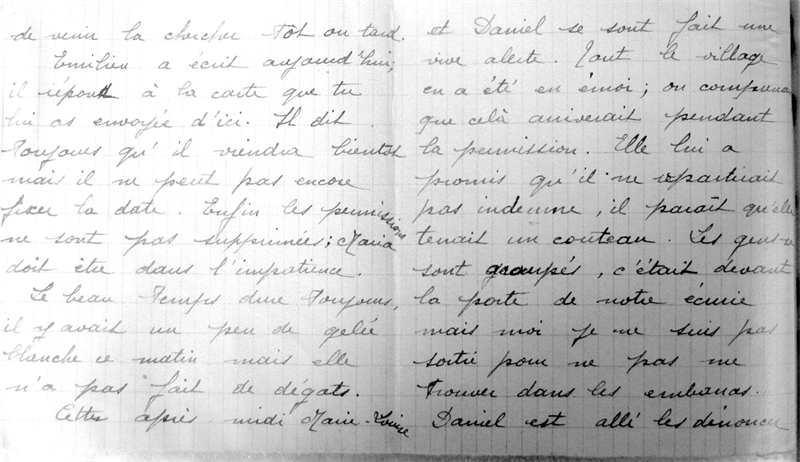 de venir la chercher tôt ou tard.
Emilien a écrit aujourd'hui;
il répond à la carte que tu
lui as envoyée d'ici. Il dit
toujours qu'il viendra bientôt
mais il ne peut pas encore
fixer la date. Enfin les permissions
ne sont pas supprimées; Maria
doit être dans l'impatience.
Le beau temps dure toujours,
il y avait un peu de gelée
blanche ce matin mais elle
n'a pas fait de dégats.
Cette après midi Marie-Louise
et Daniel se sont fait une
vive alerte. Tout le village
en a été en émoi; on
que celà arriverait pendant
la permission. Elle lui a
promis qu'il ne repartirait
pas indemne, il paraît qu'elle
tenait un couteau. Les gens se
sont groupés, c'était devant
la porte de notre écurie
mais moi je ne suis pas
sortie pour ne pas me
trouver dans les embarras.
Daniel est allé les dénoncer